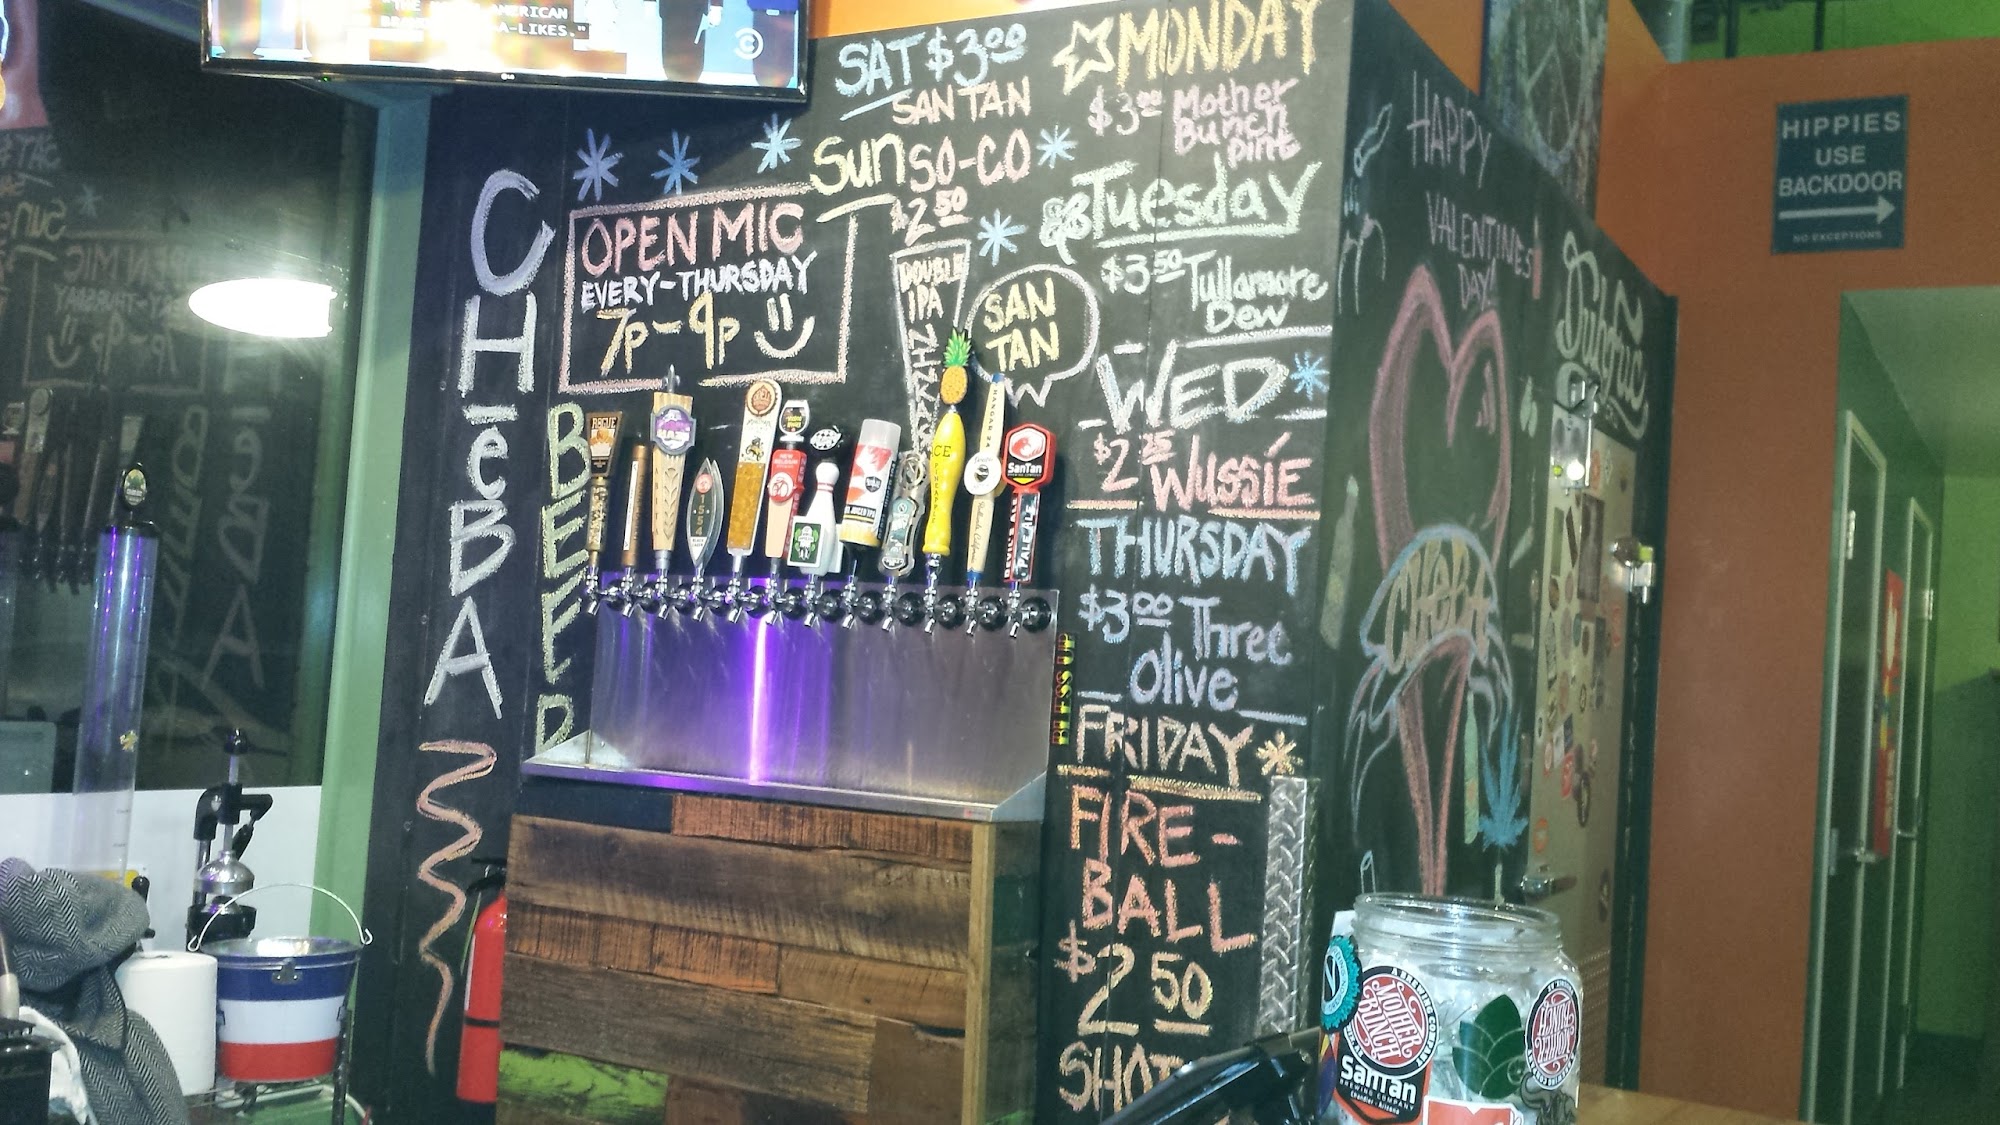 "THE
AMERICAN
A-LIKES."
LG
CHEBA
BEER
OPEN MIC
EVERY-THURSDAY
7p-9p
SAT $3.00
SAN TAN
Sun SO-CO
$2.50
DOUBLE
IPA
SAN
TAN
MONDAY
$3.00 Mother
Bunch
pint
Tuesday
$3.50 Tullamore
Dew
WED
$2.25 Wussie
THURSDAY
$3.00 Three
Olive
FRIDAY
FIRE-
BALL
$2.50
SHOT
HAPPY
VALENTINES
DAY!
CHEBA
Dubruc
HIPPIES
USE
BACKDOOR
NO EXCEPTIONS
ROGUE
SanTan
PALE ALE
BLESS UP
MOTHER
BUNCH
A BREWING COMPANY
SanTan
BREWING COMPANY
Chandler, Arizona
MOTHER
BUNCH